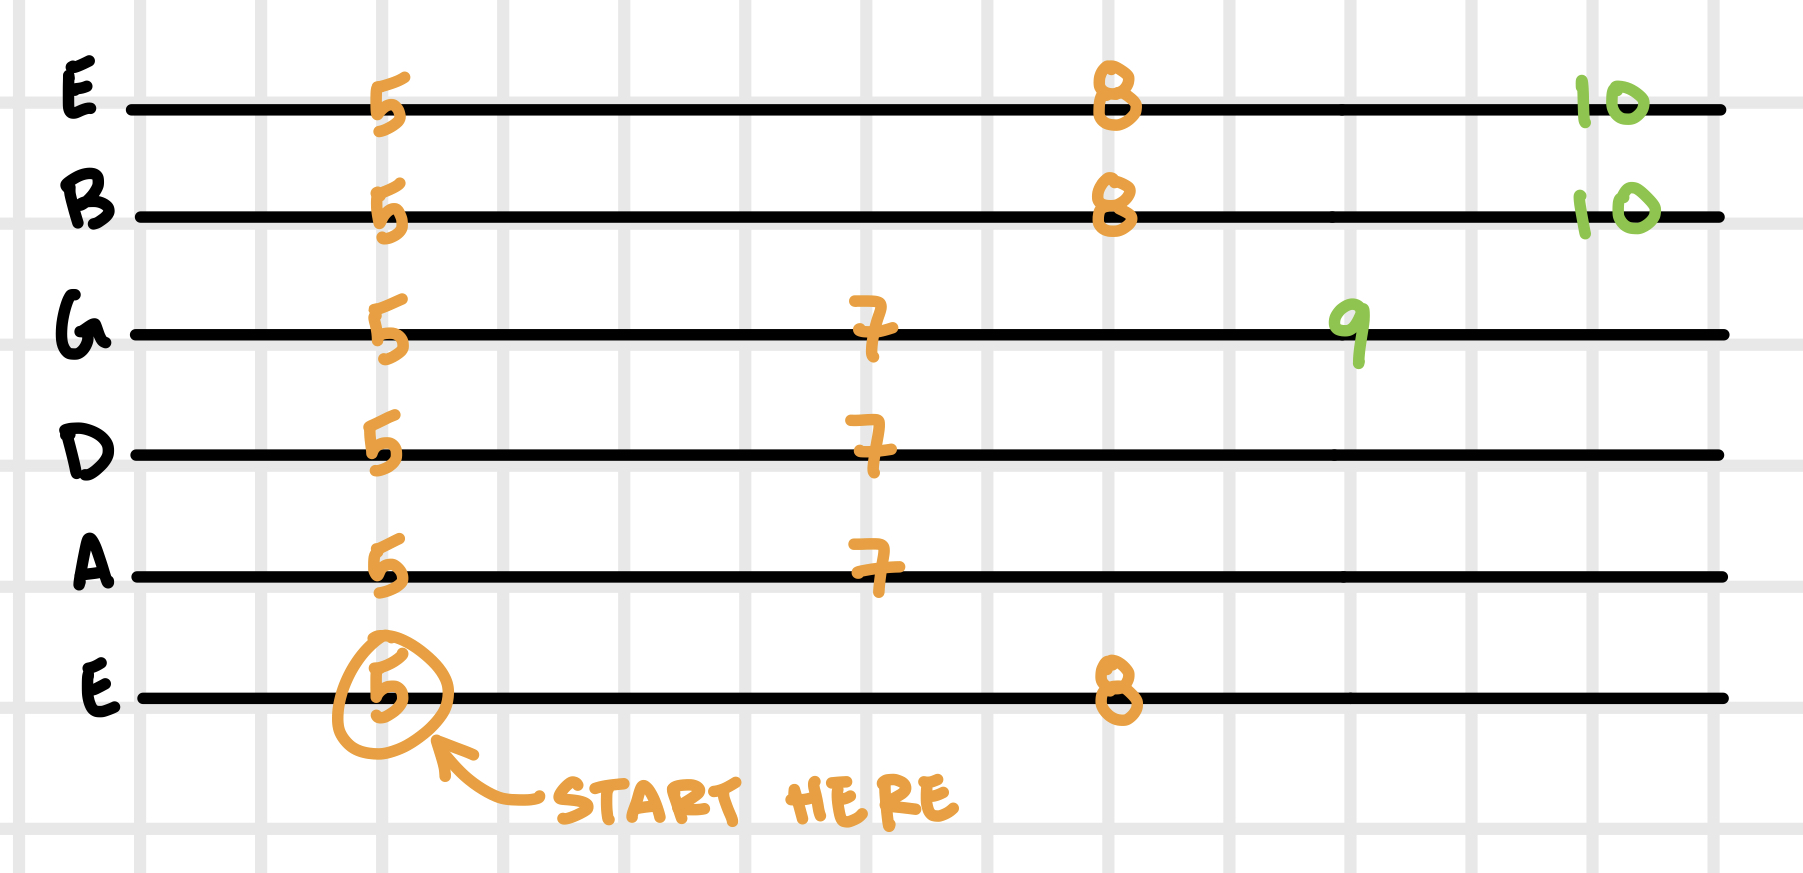 E 5 8 10
B 5 8 10
G 5 7 9
D 5 7
A 5 7
E 5 8
START HERE